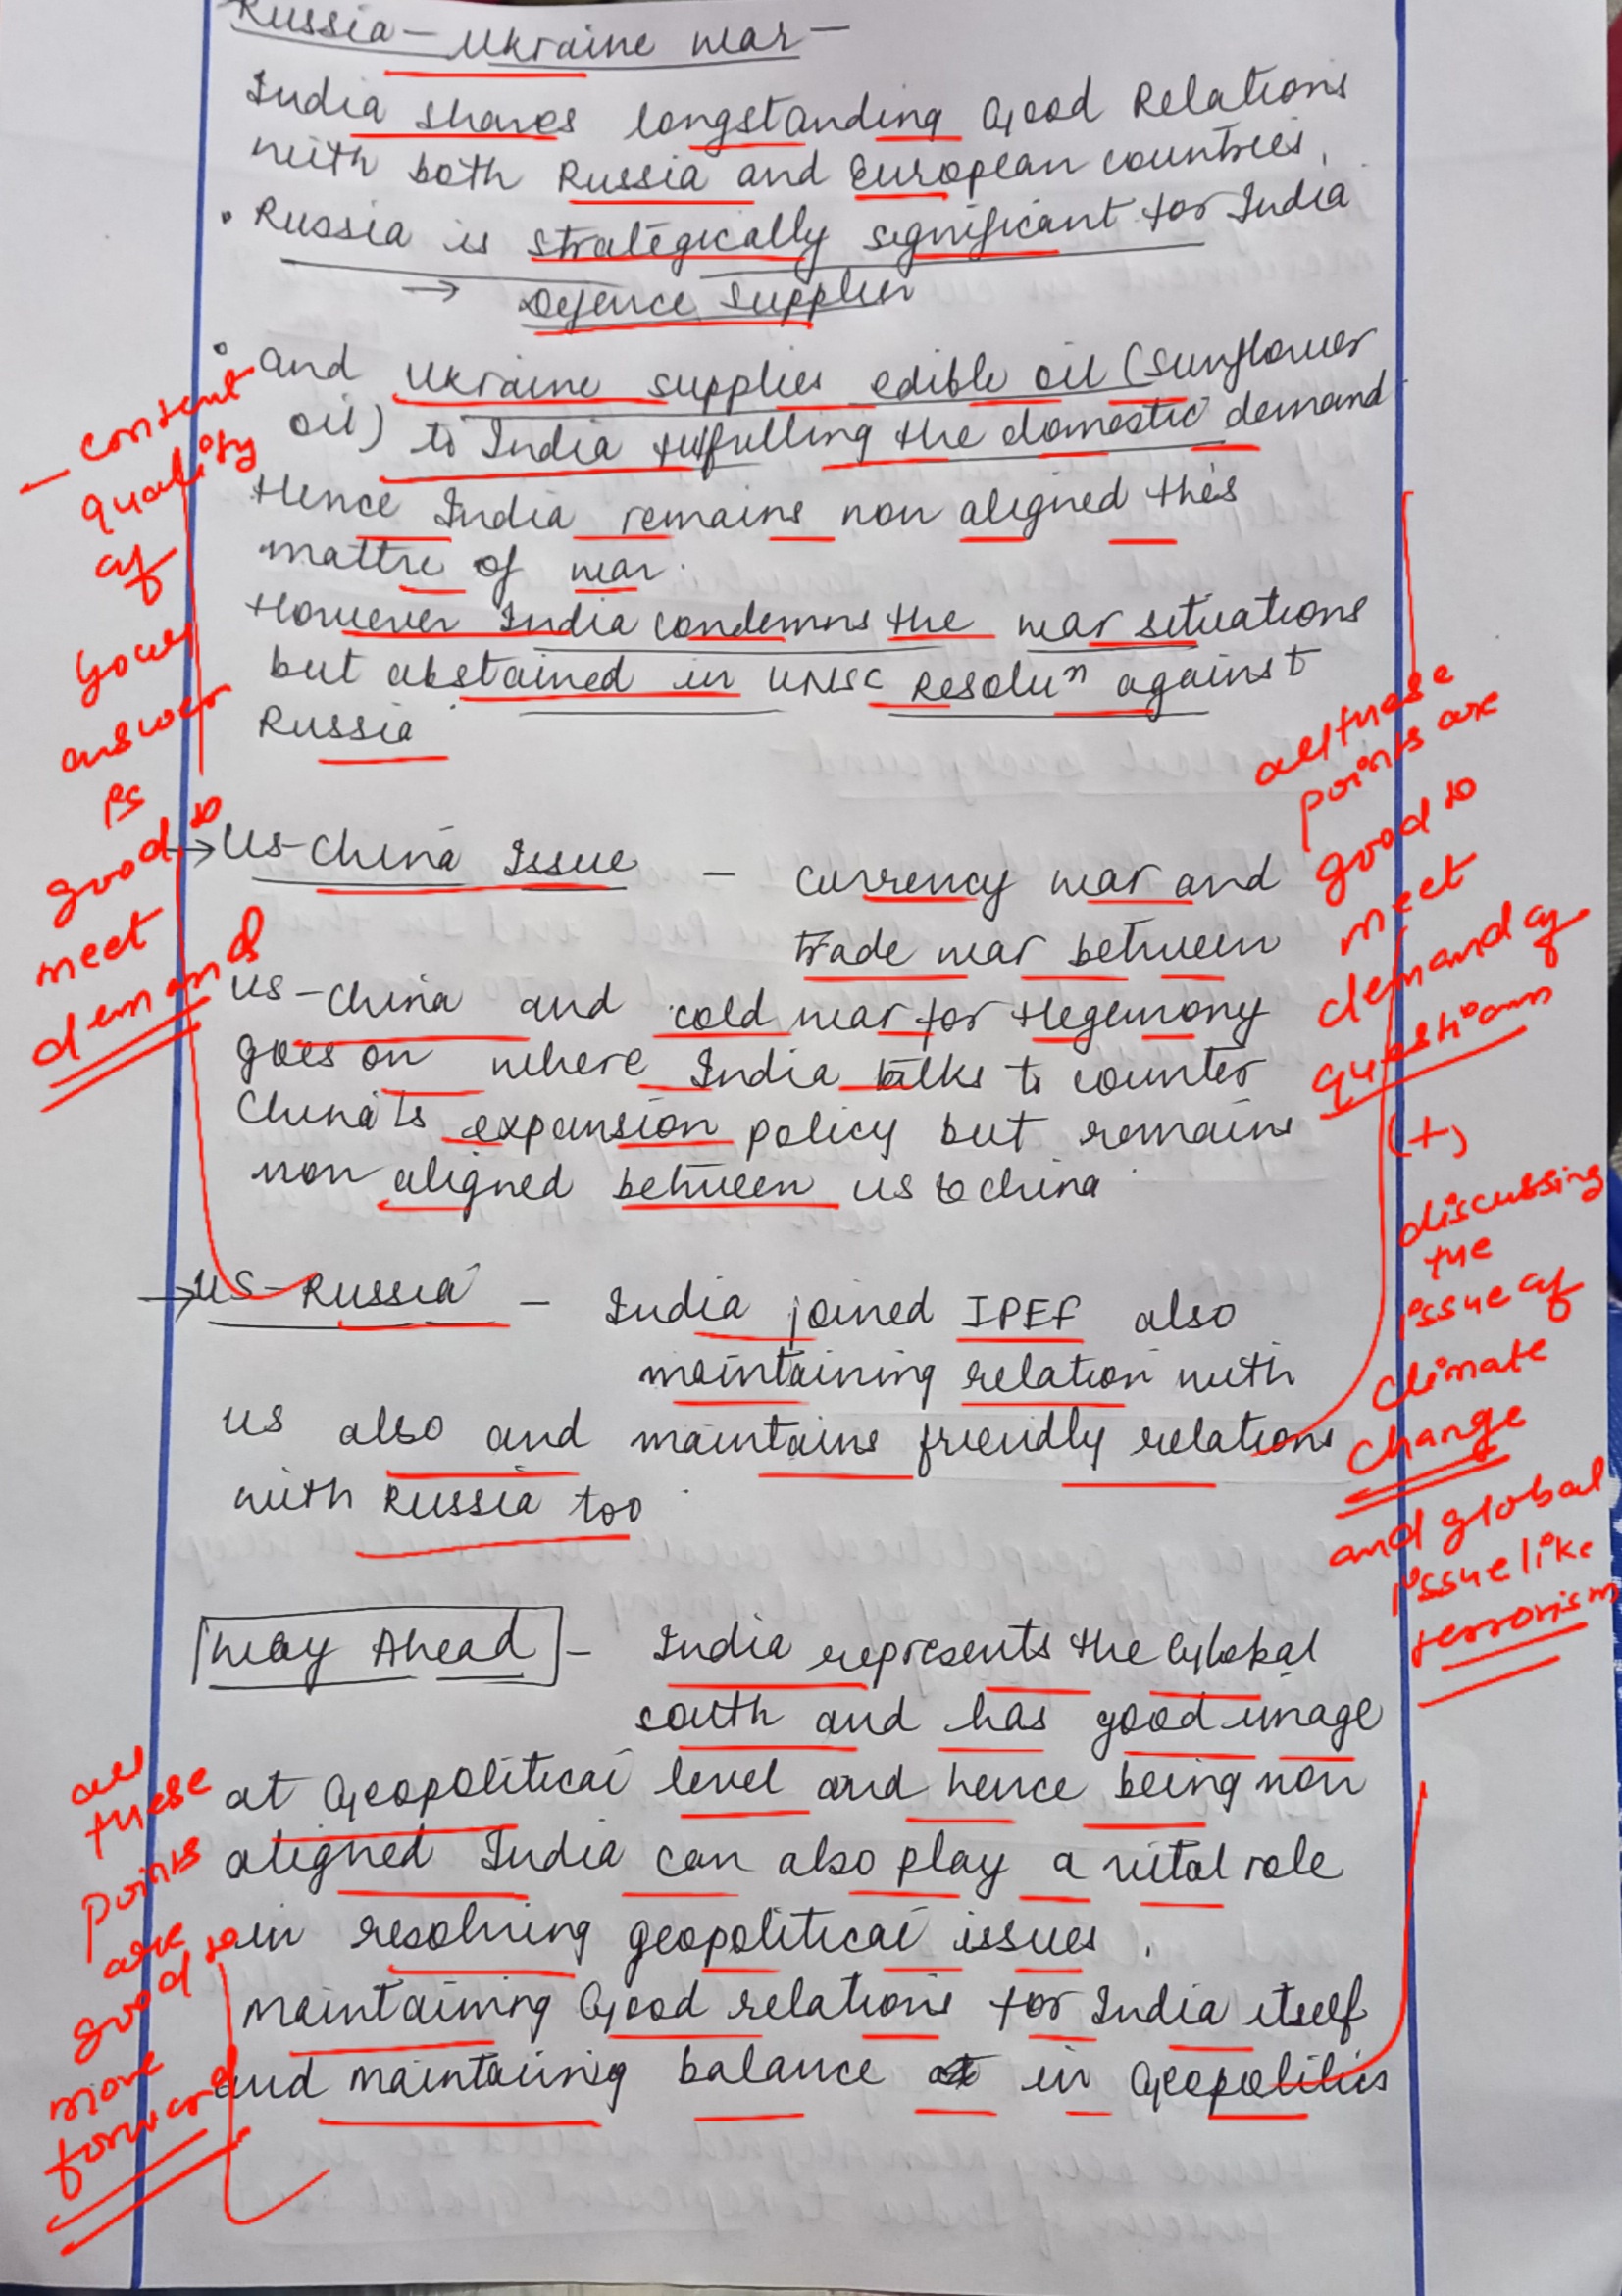 Russia - Ukraine war -
India shares longstanding Good Relations
with both Russia and European countries.
• Russia is strategically significant for India
→ Defence supplier
• and Ukraine supplies edible oil (sunflower
oil) to India fulfilling the domestic demand
Hence India remains non aligned this
mattre of war.
However India condemns the war situations
but abstained in UNSC Resoluⁿ against
Russia
- content
quality
of
your
answer
is
good to
meet
demand
→ US-China Issue - currency war and
trade war between
US-China and cold war for Hegemony
goes on where India talks to counter
China's expansion policy but remains
non aligned between US & China
all these
points are
good to
meet
demand of
questions
(+)
discussing
the
issue of
climate
change
and global
issue like
terrorism
→ US-Russia - India joined IPEF also
maintaining relation with
US also and maintains friendly relations
with Russia too
Way Ahead - India represents the Global
south and has good image
at Geopolitical level and hence being non
aligned India can also play a vital role
in resolving geopolitical issues.
maintaining Good relations for India itself
and maintaining balance in Geopolitics
all
these
points
are
good to
move
forward